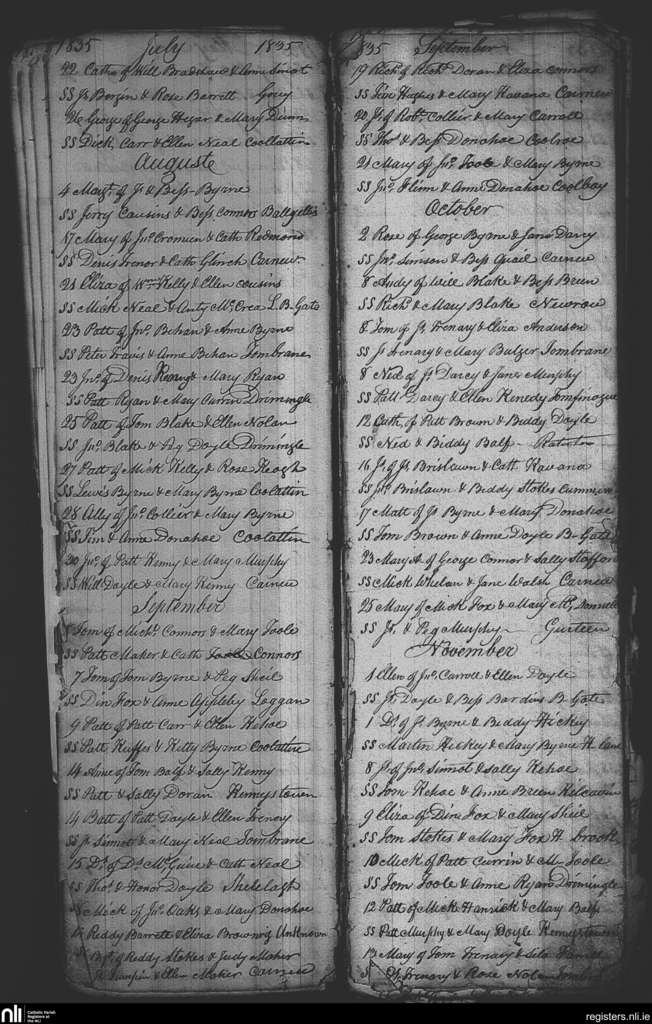 1835 July 1835
22 Cathe of Will Bradshaw & Anne Sinnot
SS Js Bergin & Rose Barrett Gorey
26 George of George Hegar & Mary Dunn
SS Dick Carr & Ellen Neal Coollattin
Auguste
4 Magt of Js & Bess Byrne
SS Jerry Cousins & Bess Connors Ballyellis
17 Mary of Jno Cromien & Cath Redmond
SS Denis Trenor & Cath Carnew
21 Eliza of Wm Kelly & Ellen Cousins
SS Mick Neal & Anty McCrea L.B. Gate
23 Patt of Jno Behan & Anne Byrne
SS Peter Travis & Anne Behan Tombrane
23 Jno of Denis & Mary Ryan
SS Patt Ryan & Mary Dimingle
25 Patt of Tom Blake & Ellen Nolan
SS Jno Blake & Peg Doyle
27 Patt of Mick Kelly & Rose Keogh
SS Lewis Byrne & Mary Byrne Coolattin
28 Ally of Jno Collier & Mary Byrne
SS Tim & Anne Donahoe Coolattin
30 Jno of Patt Kenny & Mary Murphy
SS Will Doyle & Mary Kenny Carnew
September
Tom of Michl Connors & Mary Toole
SS Patt Maker & Cath Toole Connors
7 Tom of Tom Byrne & Peg Sheil
SS Din Fox & Anne Appleby Loggan
9 Patt of Patt Carr & Ellen Kehoe
SS Patt Keffes & Kitty Byrne Coolattin
14 Anne of Tom Balf & Sally Kenny
SS Patt & Sally Doran Kennystown
14 Batt of Patt Doyle & Ellen
SS Js Sinnott & Mary Neal Tombrane
15 Ds of Ds McGuire & Cath Neal
SS Thos & Honor Doyle Shelelagh
Mick of Jno Oaks & Mary Donohoe
Reddy Barrett & Eliza Brownrig Unknown
of Reddy Stokes & Judy Maker
& Ellen Maker Carnew
1835 September
19 Richd of Richd Doran & Eliza Connors
SS Hughes & Mary Havana Carnew
20 Js of Robt Collier & Mary Carroll
SS Thos & Bess Donohoe Coolroe
21 Mary of Jno Toole & Mary Byrne
SS Jno Flinn & Anne Donahoe Coolboy
October
2 Rose of George Byrne & Jane Darcy
SS Jno Simson & Bess Quail Carnew
8 Andy of Will Blake & Bess Breen
SS Richd & Mary Blake Newrow
8 Tom of Js Trenary & Eliza Anderson
SS Js Trenary & Mary Bulger Tombrane
8 Ned of Js Darcy & Jane Murphy
SS Patt Darcy & Ellen Kenedy Tomfinogue
12 Cath of Patt Brown & Biddy Doyle
SS Ned & Biddy Balf
16 Js of Js Brislawn & Cath Kavana
SS Jno Brislawn & Biddy Stokes
17 Matt of Js Byrne & Mary Donahoe
SS Tom Brown & Anne Doyle B. Gate
23 Mary A. of George Connor & Sally Stafford
SS Mick Whelan & Jane Walsh Carnew
25 Mary of Mick Fox & Mary McDannell
SS Js & Peg Murphy Gurteen
November
1 Ellen of Jno Carroll & Ellen Doyle
SS Js Doyle & Bess Bardins B. Gate
1 Ds of Js Byrne & Biddy Hickey
SS Martin Hickey & Mary Byrne H. lane
8 Js of Jno Sinnot & Sally Kehoe
SS Tom Kehoe & Anne Breen Kilcavin
9 Eliza of Din Fox & Mary Sheil
SS Tom Stokes & Mary Fox H. brook
10 Mick of Patt Currin & M. Toole
SS Tom Toole & Anne Ryan Dimingle
12 Patt of Mick Hanrick & Mary Balf
SS Patt Murphy & Mary Doyle Kennystown
13 Mary of Tom Trenary &
Trenary & Rose Nolan
nli
Catholic Parish
Registers at
the NLI
registers.nli.ie